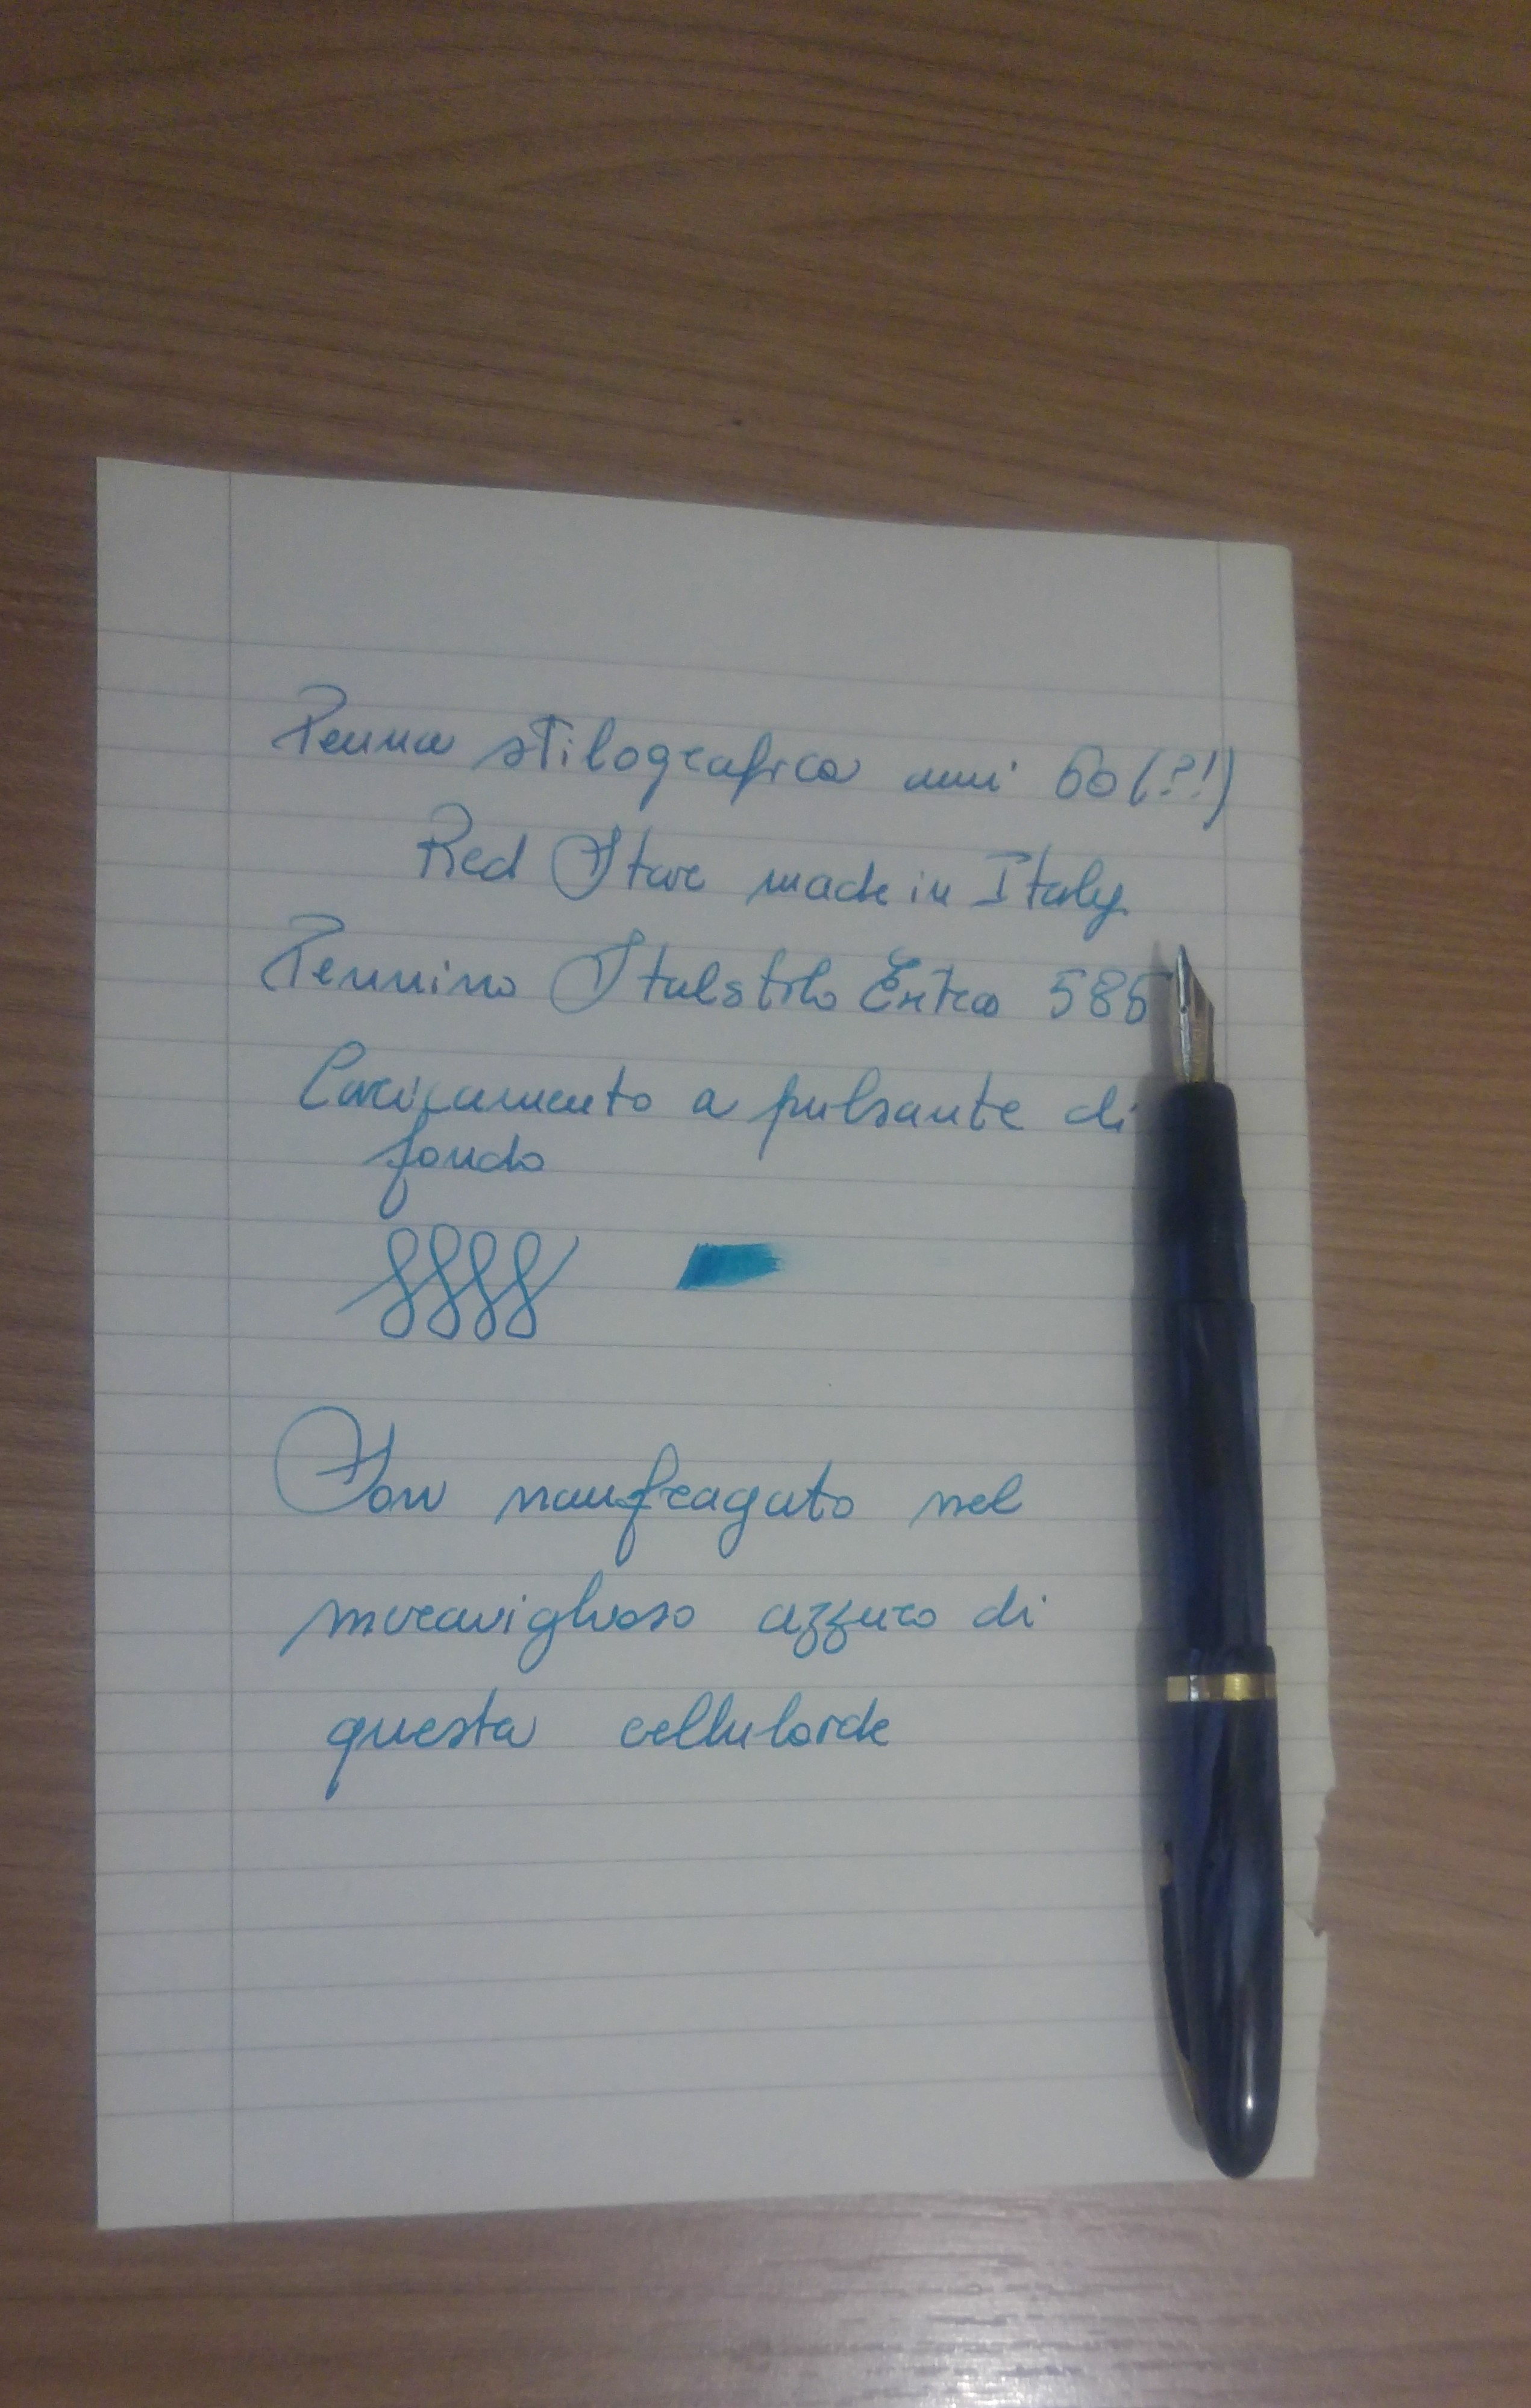 Penna stilografica anni 60 (?!)
Red Star made in Italy
Pennino Italstilo Extra 585
Caricamento a pulsante di
fondo
Son naufragato nel
meraviglioso azzuro di
questa celluloide